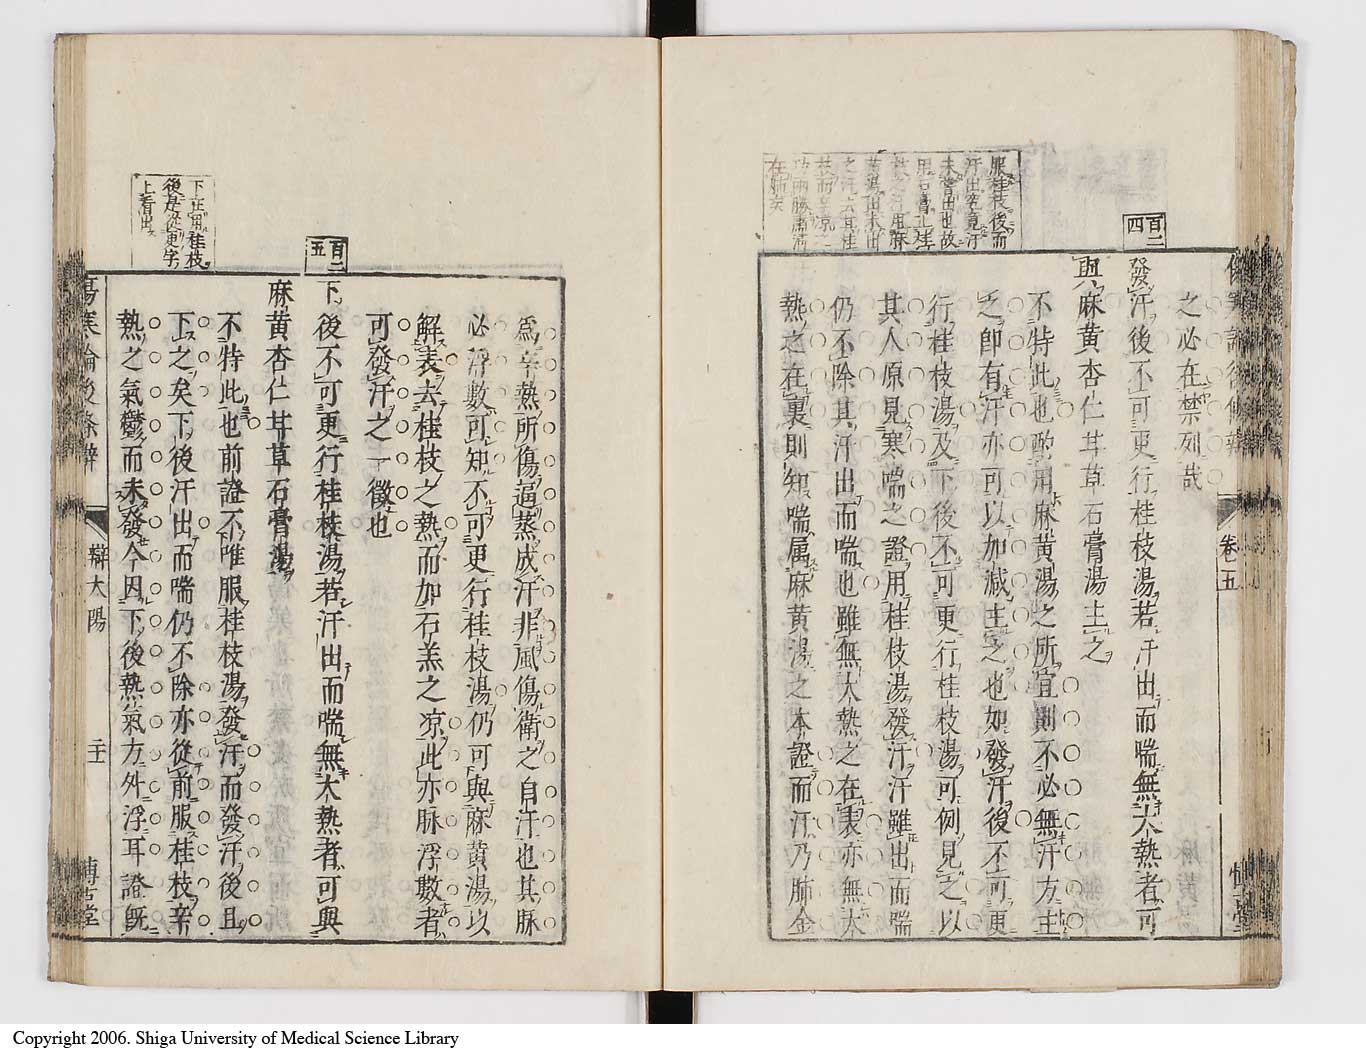 服桂枝後而
汗出究竟汗
未嘗出也故
用石膏止桂
枝之 用麻
黃湯出未出
之汗去其桂
枝而 涼
功兩勝
在 矣
百二
四
之必在禁列哉
發汗後不可更行桂枝湯若汗出而喘無大熱者可
與麻黃杏仁甘草石膏湯主之
不特此也酌用麻黃湯之所宜則不必無汗方主
之即有汗亦可以加減主之也如發汗後不可更
行桂枝湯及下後不可更行桂枝湯可例見之以
其人原見寒喘之證用桂枝湯發汗汗雖出而喘
仍不除其汗出而喘也雖無大熱之在表亦無大
熱之在裏則知喘属麻黃湯之本證而汗乃肺金
卷五
為辛熱所傷逼蒸成汗非風傷衛之自汗也其脉
必浮數可知不可更行桂枝湯仍可與麻黃湯以
解表去桂枝之熱而加石羔之凉此亦脉浮數者
可發汗之一徵也
百二
五
下後不可更行桂枝湯若汗出而喘無大熱者可與
麻黃杏仁甘草石膏湯
不特此也前證不唯服桂枝湯發汗而發汗後且
下之矣下後汗出而喘仍不除亦從前服桂枝辛
熱之氣鬱而未發今因下後熱氣方外浮耳證既
下在用桂枝
後是從更字
上看出
傷寒論後條辨
辯太陽
二十
博古堂
Copyright 2006. Shiga University of Medical Science Library